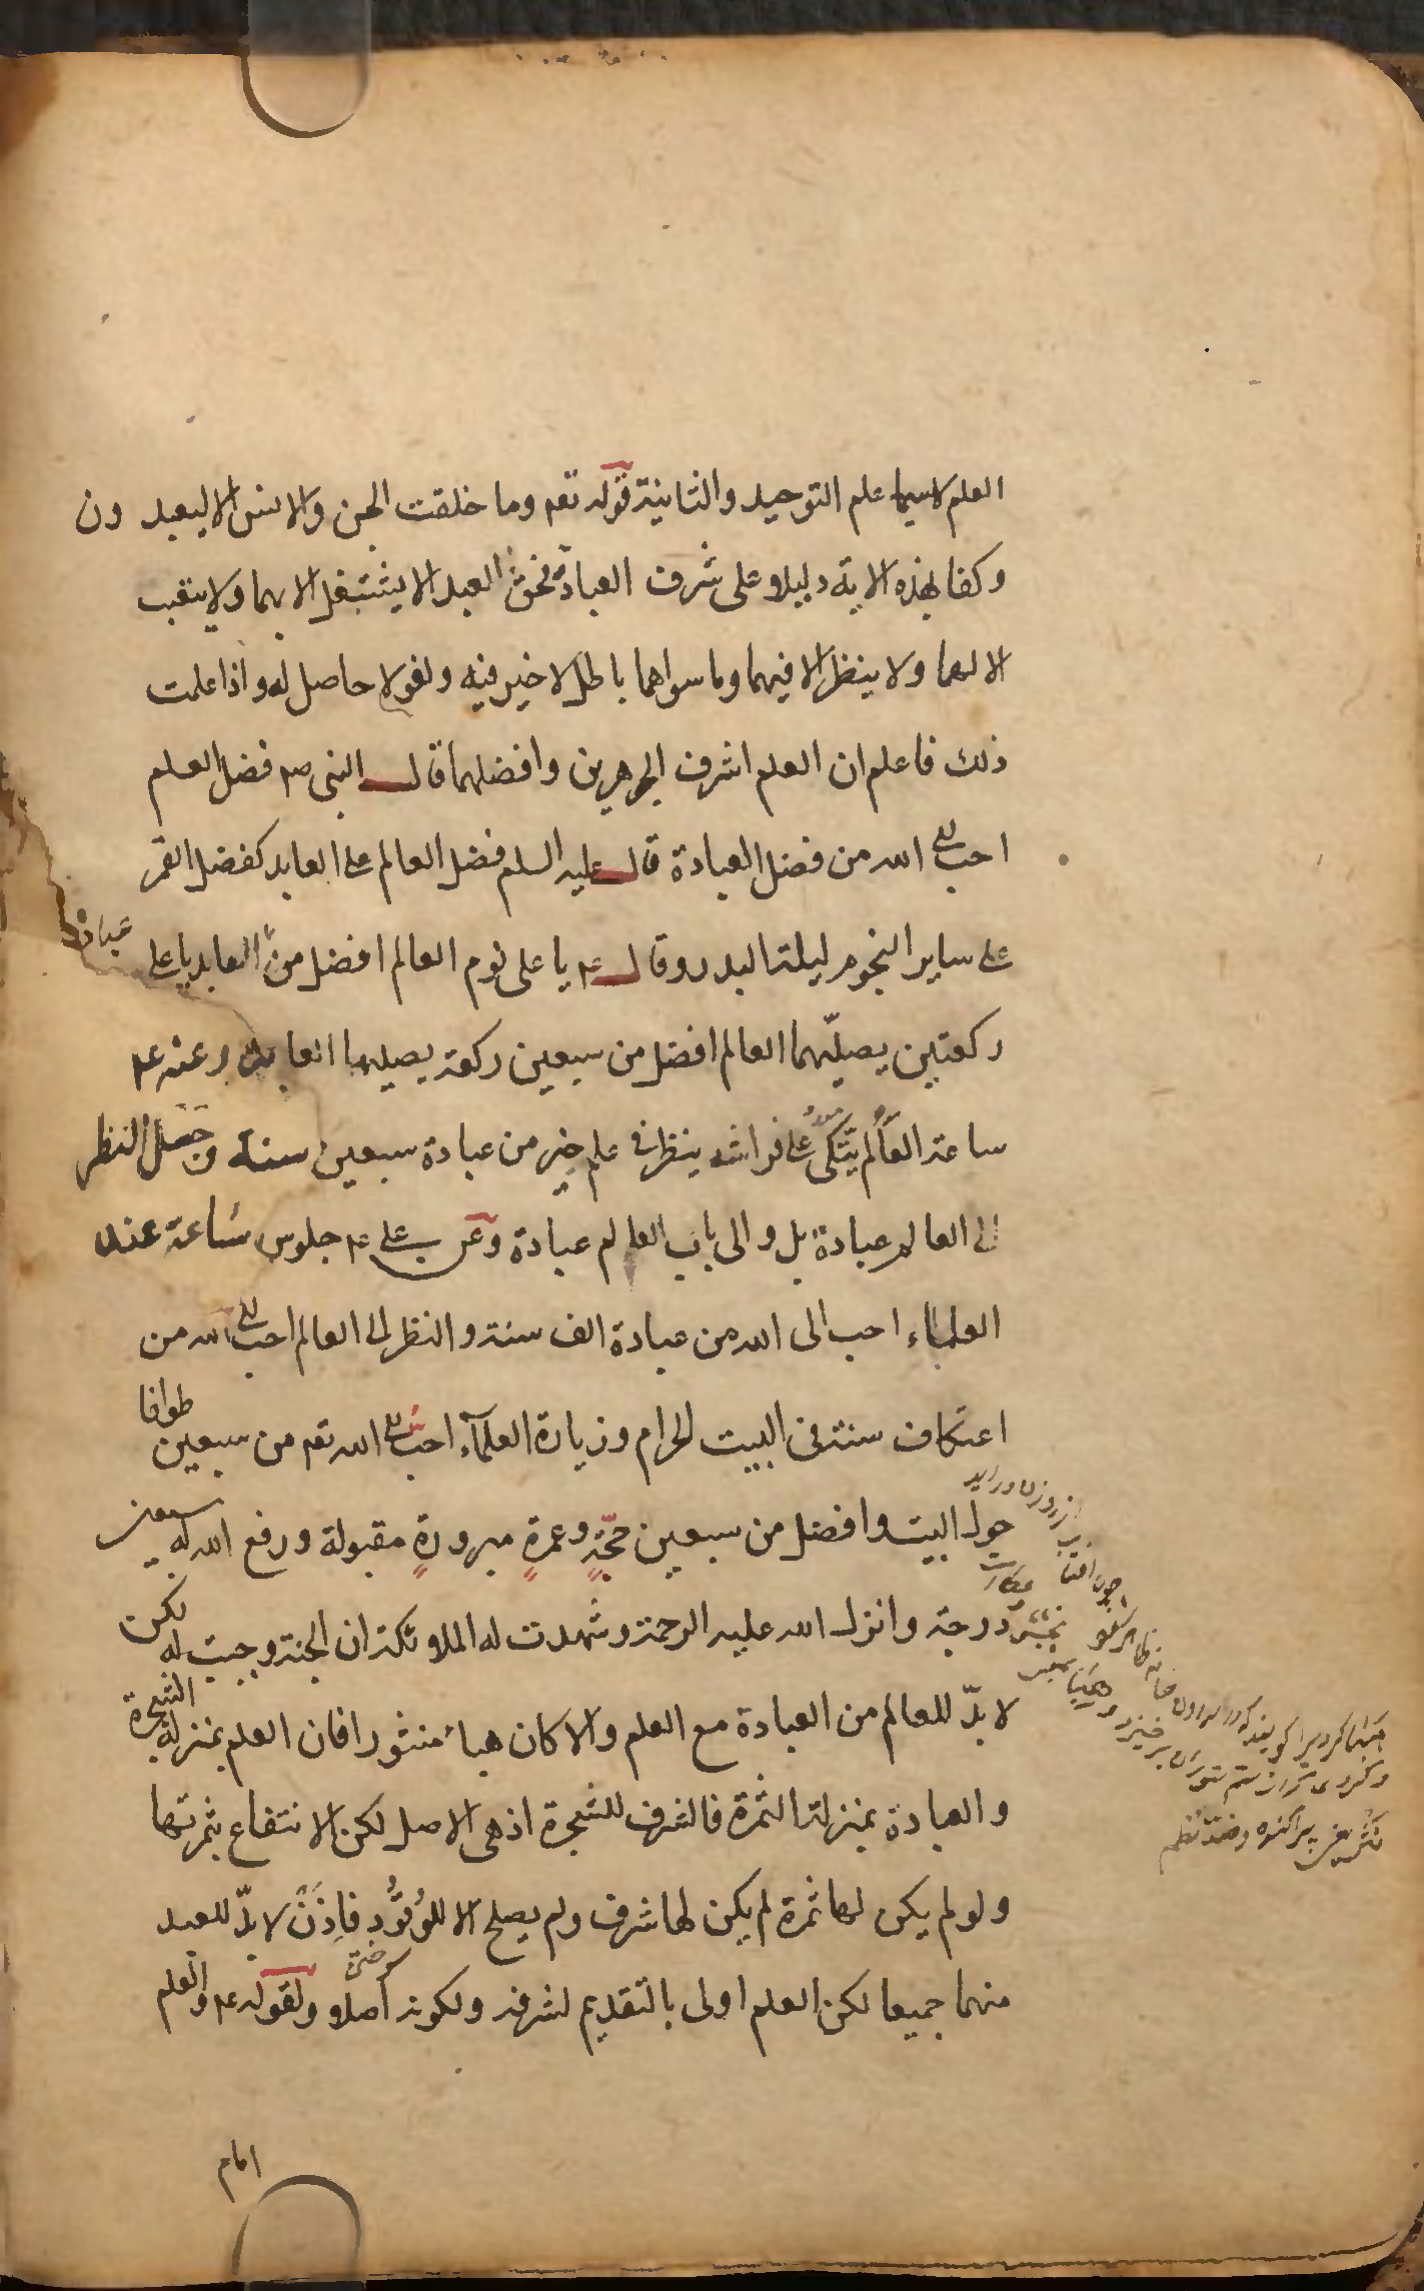 العلم لاسيما علم التوحيد والثانية قوله تعه وما خلقت الجن والانس الا ليعبدون
وكفا بهذه الاية دليلا على شرف العبادة فحق العبد الا يشتغل الا بهما ولا يتعب
الا لهما ولا ينظر الا فيهما وما سواهما باطل لا خير فيه ولغو لا حاصل له واذا علمت
ذلك فاعلم ان العلم اشرف الجوهرين وافضلهما قال النبى صم فضل العلم
احب الى الله من فضل العبادة قال عليه السلم فضل العالم على العابد كفضل القمر
على ساير النجوم ليلة البدر وقال عم يا على نوم العالم افضل من عبادة العابد يا على
ركعتين يصليّهما العالم افضل من سبعين ركعة يصليها العابد وعنه عم
ساعة العالم يتّكى على فراشه ينظر فى علم خير من عبادة سبعين سنة وجعل النظر
الى العالم عبادة بل والى باب العالم عبادة وعن على عم جلوس ساعة عند
العلماء احب الى الله من عبادة الف سنة والنظر الى العالم احب الى الله من
اعتكاف سنة فى البيت الحرام وزيارة العلمآء احب الى الله تعه من سبعين طوافا
حول البيت وافضل من سبعين حجّةٍ وعمرةٍ مبرورةٍ مقبولة ورفع الله له سبعين
درجة وانزل الله عليه الرحمة وشهدت له الملائكة ان الجنة وجبت له لكن
لا بدّ للعالم من العبادة مع العلم والا كان هباء منثورا فان العلم بمنزلة الشجرة
والعبادة بمنزلة الثمرة فالشرف للشجرة اذ هى الاصل لكن الانتفاع بثمرتها
ولو لم يكن لها ثمرة لم يكن لها شرف ولم يصلح الا للوُقُود فاِذَنْ لا بدّ للعبد
منهما جميعا لكن العلم اولى بالتقديم لشرفه ولكونه أصلا ولقوله عم والعلم
امام